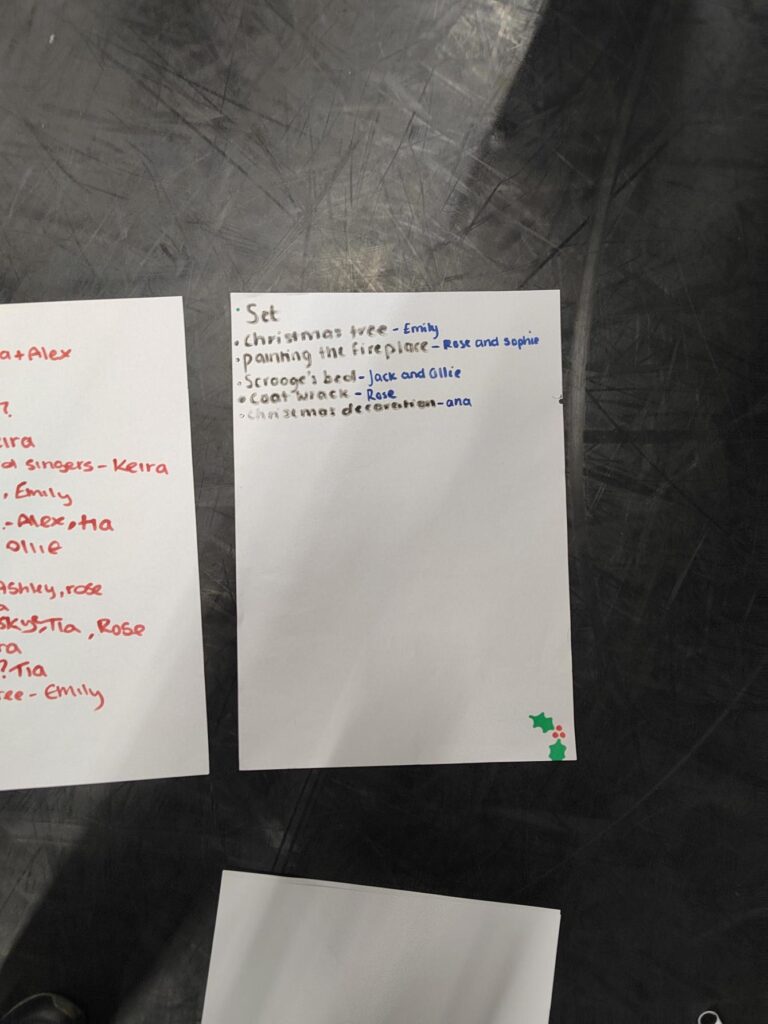 a + Alex
?
eira
d singers - Keira
, Emily
- Alex, tia
Ollie
Ashley, rose
a
Skye, Tia, Rose
ra
? Tia
ree - Emily
• Set
• christmas tree - Emily
• painting the fireplace - Rose and sophie
• Scrooge's bed - Jack and Ollie
• Coat wrack - Rose
• christmas decoration - ana